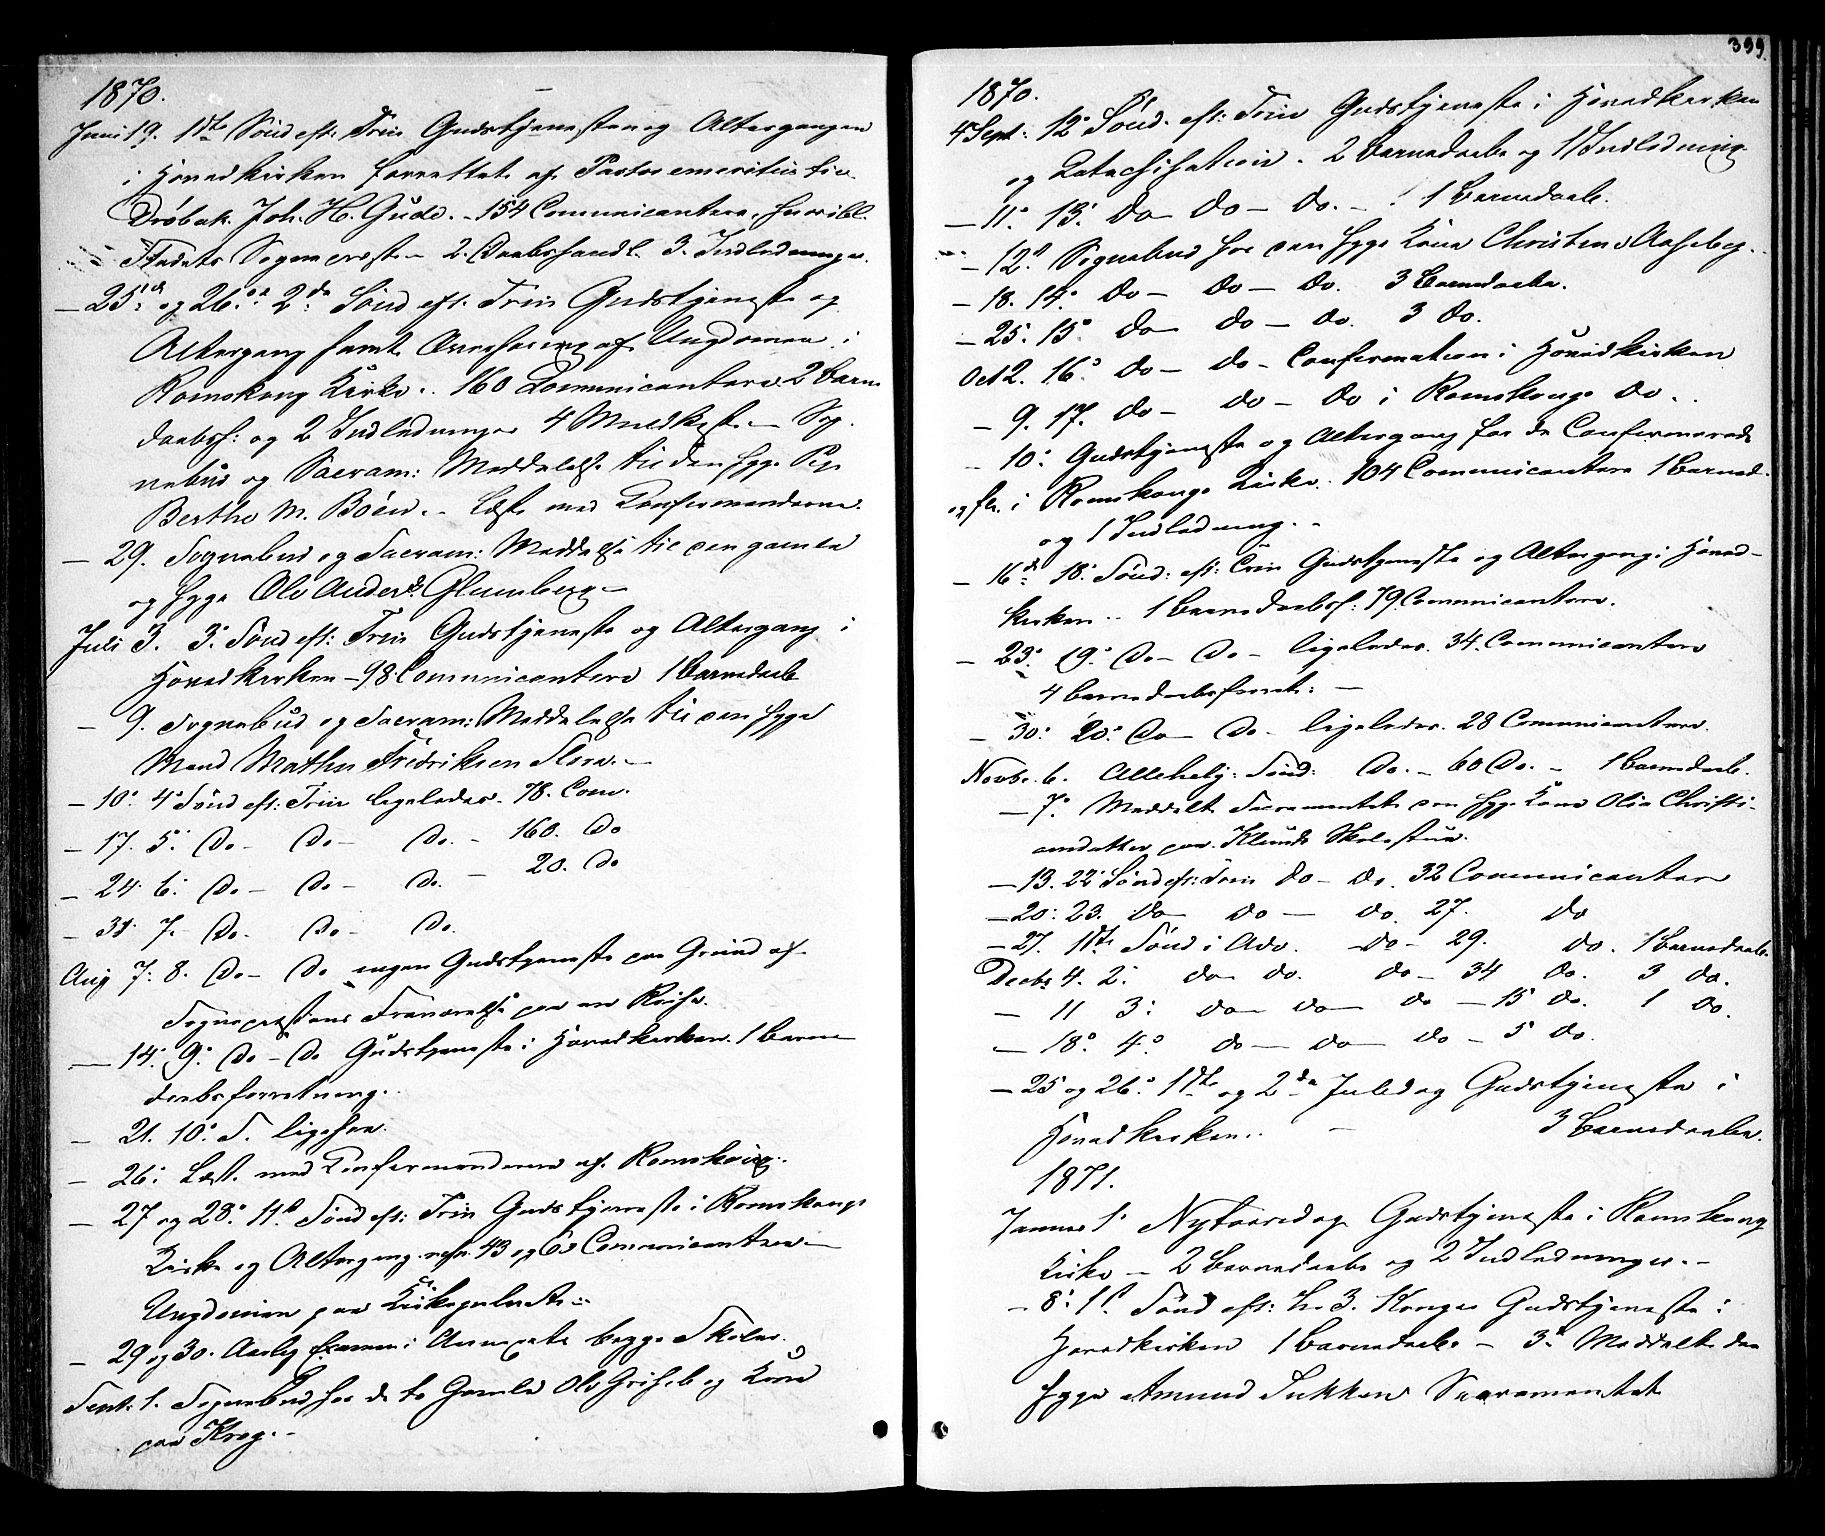 1870.
Juni 19. 11te Sønd eft: Trin Gudstjenesten og Altergangen
i Hovedkirken forrettet af Pastor emeritus fra
Drøbak Joh. H. Gude. - 154 Communicantere,
Stedets Sognepræst - 2 Daabshandl. 3 Indledninger.
- 25de og 26: 2den Sønd eft. Trin Gudstjeneste og
Altergang samt Overhøring af Ungdommen i
Romskong Kirke. 160 Communicantere 2 Barne
daabsf: og 2 Indledninger 4 - Sog
nebud og Sacram: Meddelelse til den syge Pige
Berthe M. Bøen. - Læste med Confirmanderne.
- 29. Sognebud og Sacram: Meddelelse til den gamle
og syge Ole Anders. Glumberg -
Juli 3. 3: Sønd eft: Trin Gudstjeneste og Altergang i
Hovedkirken - 98 Communicantere 1 Barnedaab
- 9. Sognebud og Sacram: Meddelelse til den syge
Mand Mathis Fredriksen -
- 10: 4: Sønd eft: Trin ligeledes. 78. Com.
- 17. 5: Do - Do - Do. - 160. Do
- 24. 6: Do - Do - Do. - 20. Do
- 31. 7. Do. Do - Do.
Aug 7: 8. Do - Do ingen Gudstjeneste paa Grund af
Sognepræstens Fraværelse paa en Reise.
- 14. 9: Do - Do Gudstjeneste i Hovedkirken. 1 Barne
daabsforretning.
- 21. 10: S. ligesaa.
- 26: Læst med Confirmanderne af Romskoug.
- 27 og 28: 11te Sønd eft: Trin Gudstjeneste i Romskougs
Kirke og Altergang 43 og Communicantere -
Ungdommen paa Kirkegulvet -
- 29 og 30. Aarlig Examen i Annexets begge Skoler.
Sept: 1. Sognebud hos de to Gamle Ole og Kone
paa Krog. -
399.
1870.
4 Sept: 12: Sønd. eft: Trin Gudstjeneste i Hovedkirken
og Catechisation. 2 Barnedaabe og 1 Indledning
- 11: 13: Do Do - Do. - 1 Barnedaab.
- 12: Sognebud hos den syge Kone Christine Aaseby.
- 18. 14: Do - Do - Do. 3 Barnedaabe.
- 25. 15: Do Do - Do. 3 Do.
Oct 2. 16: Do - Do - Confirmation i Hovedkirken
- 9. 17. Do - Do - Do i Romskougs Do.
- 10: Gudstjeneste og Altergang for de Confirmerede
og fl. i Romskougs Kirke. 104 Communicantere 1 Barned.
og 1 Indledning. -
- 16de 18: Sønd: eft: Trin Gudstjeneste og Altergang i Hoved-
kirken - 1 Barnedaabsf: 79 Communicantere.
- 23: 19: Do - Do - ligeledes. 34. Communicantere
4 Barnedaabsforret: -
- 30: 20: Do Do - ligeledes. 28 Communicantere.
Novbr. 6. Allehelg: Sønd: Do. - 60 Do. - 1 Barnedaab.
- 7: Meddelt Sacramentet den syge Kone Olia Christi-
andatter paa Klunds Skolestue.
- 13. 22: Sønd eft: Trin Do - Do. 32 Communicantere
- 20: 23. Do Do - Do. 27. Do
- 27. 11te Sønd i Adv. - Do - 29. Do. 1 Barnedaab.
Decbr 4. 2: Do Do. Do - 34 Do. 3 Do.
- 11 3: Do - Do - Do - 15 Do. 1 Do.
- 18: 4: Do - Do Do - 5 Do.
- 25 og 26: 1ste og 2den Juledag Gudstjeneste i
Hovedkirken. - 3 Barnedaabe.
1871.
Januar 1: Nytaarsdag Gudstjeneste i Romskoug
Kirke - 2 Barnedaabe og 2 Indledninger. -
- 8: 1ste Sønd eft: H. 3. Konger Gudstjeneste i
Hovedkirken 1 Barnedaab - 3: Meddelt den
syge Amund Sukken Sacramentet